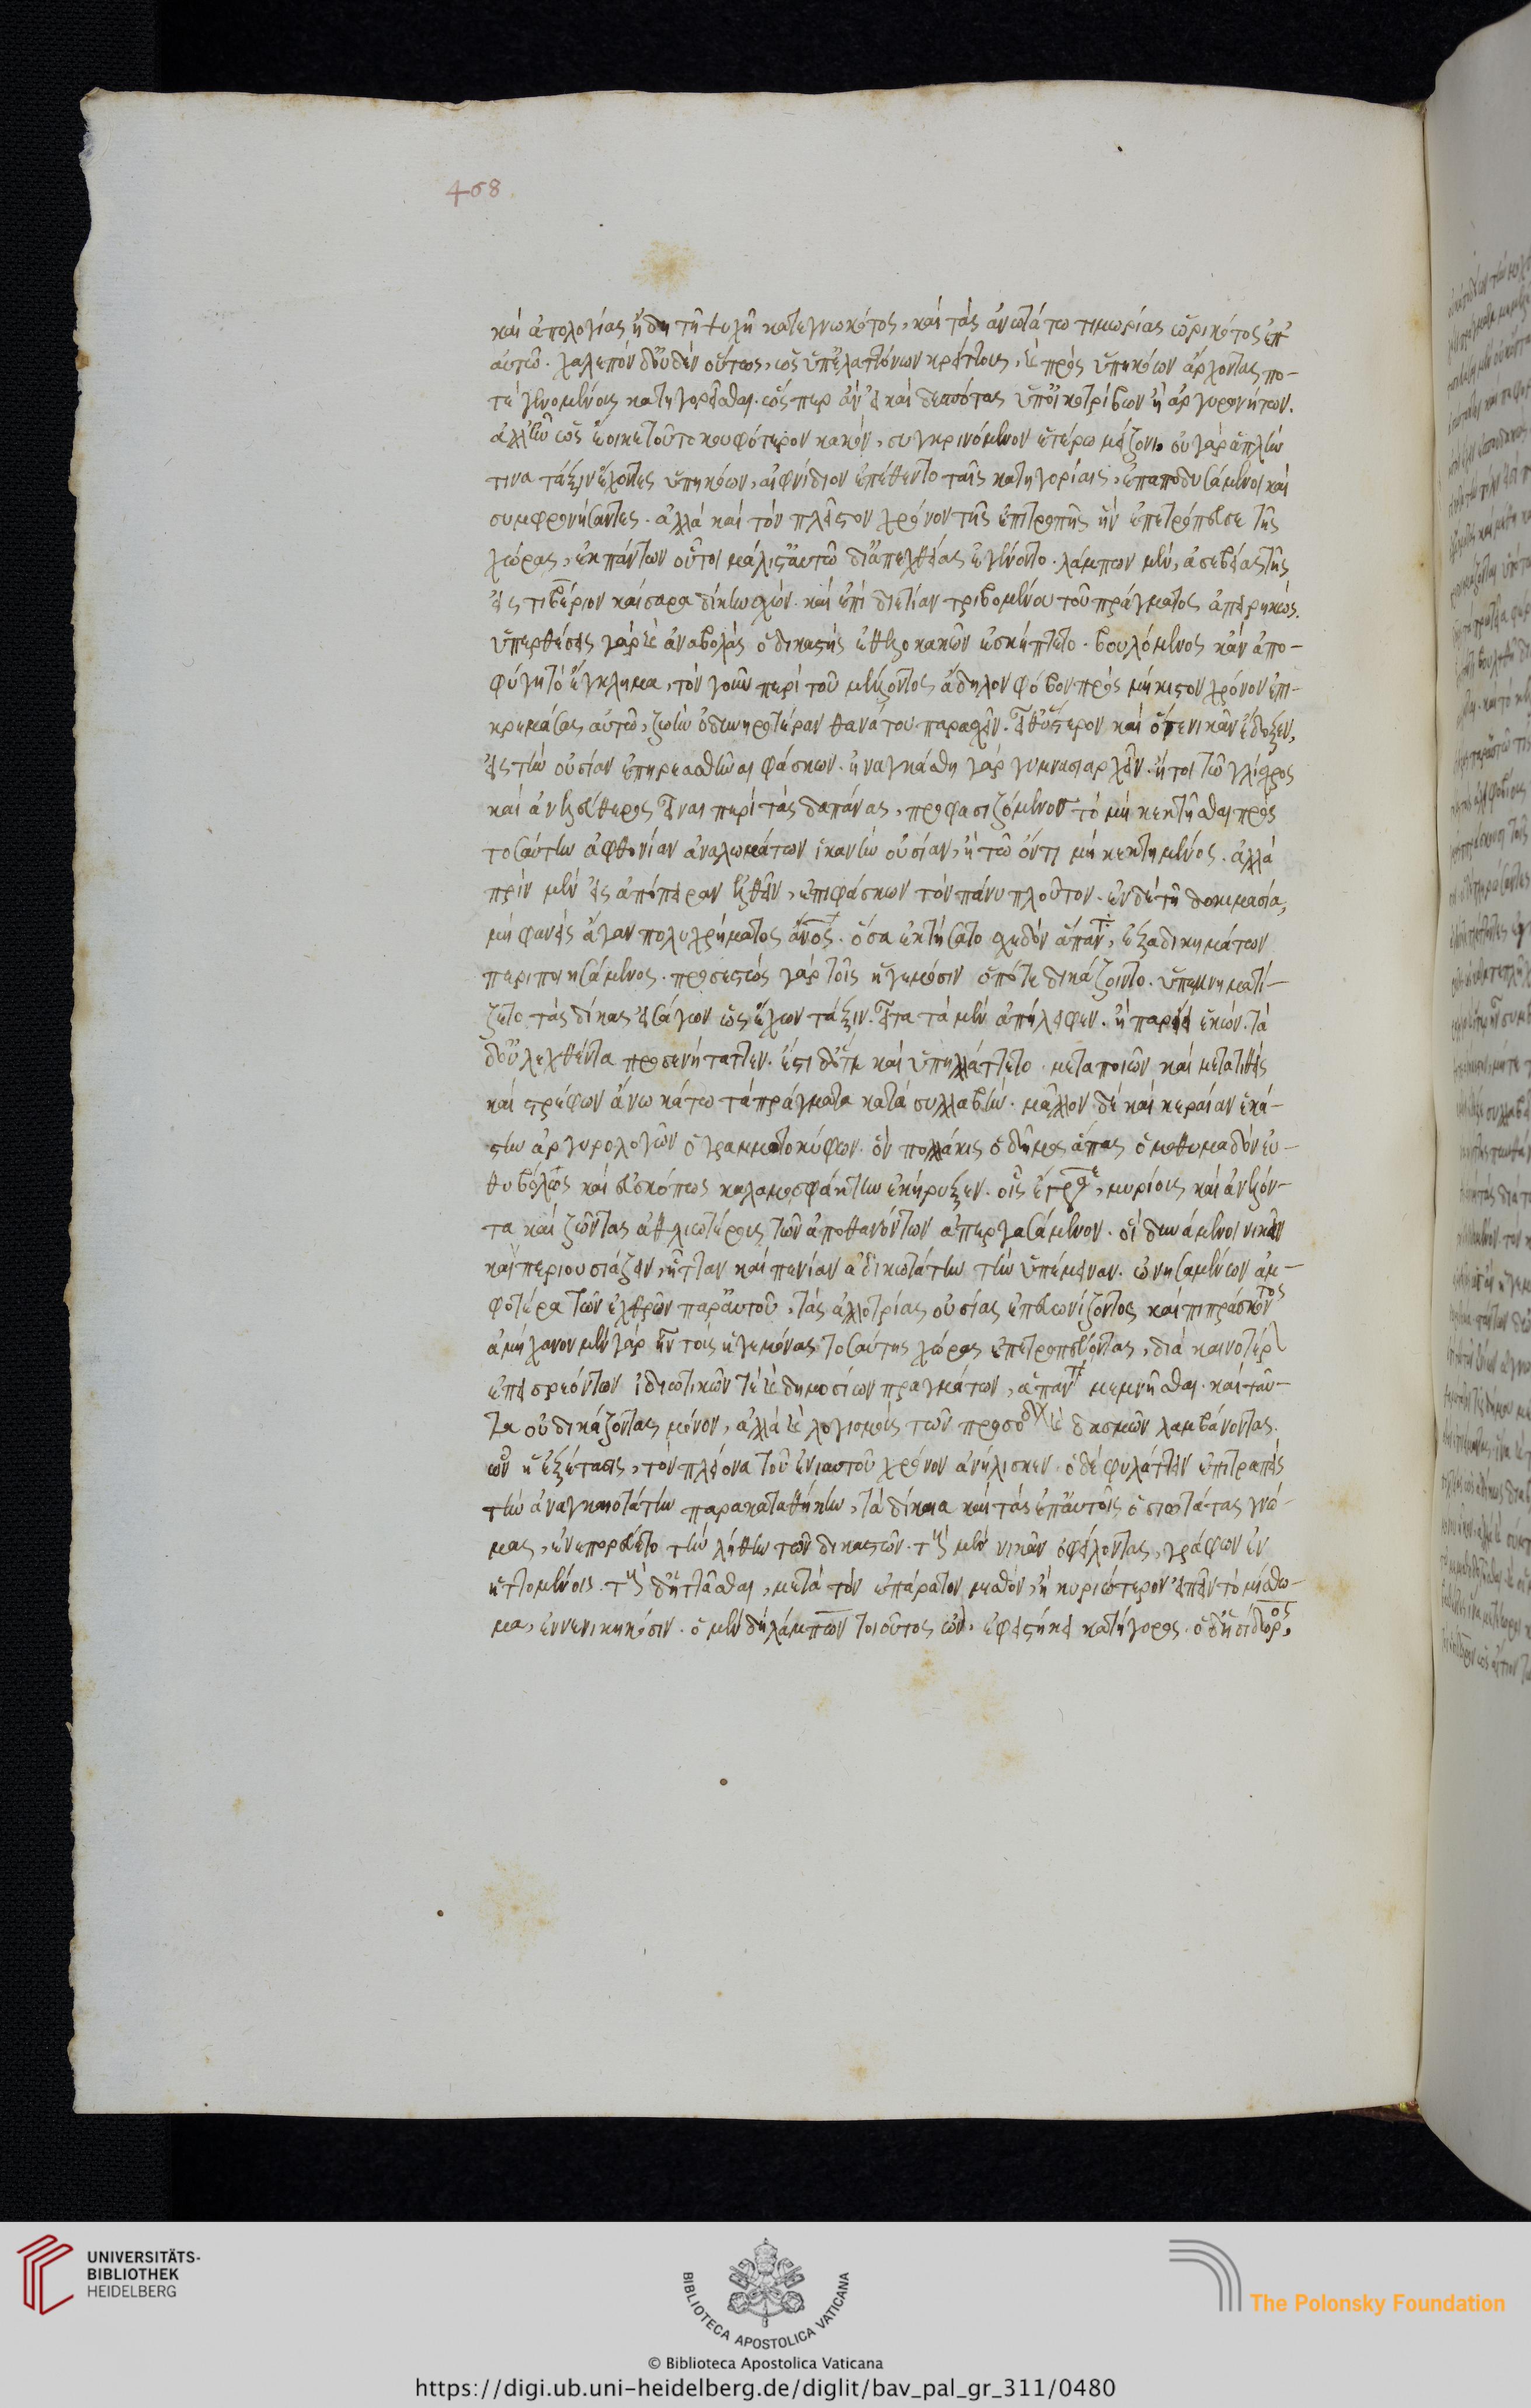 468
καὶ ἀπολογίας ἤδη τῆ ψυχῆ κατεγνωκότος, καὶ τὰς ἀνωτάτω τιμωρίας ὡρικότος ἐπ'
αὐτῶ. χαλεπὸν δ' οὐδὲν οὕτως, ὡς ὑπ' ἐλαττόνων κρείττους, καὶ πρὸς ὑπηκόων ἄρχοντας πο-
τὲ γενομένους κατηγορεῖσθαι. ὥσπερ ἂν εἰ καὶ δεσπότας ὑπ' οἰκοτρίβων ἢ ἀργυρωνήτων.
ἀλλ' ἦν ὡς ἔοικε τοῦτο κουφότερον κακὸν, συγκρινόμενον ἑτέρω μείζονι. οὐ γὰρ ἁπλῆν
τινα τάξιν ἔχοντες ὑπηκόων, αἰφνίδιον ἐπέθεντο ταῖς κατηγορίαις, ἐπαποδυσάμενοι καὶ
συμφρονήσαντες. ἀλλὰ καὶ τὸν πλεῖστον χρόνον τῆς ἐπιτροπῆς ἣν ἐπετρόπευσε τῆς
χώρας, ἐκ πάντων οὗτοι μάλιστ' αὐτῶ δι' ἀπεχθείας ἐγένοντο. λάμπων μὲν, ἀσεβείας τῆς
εἰς τιβέριον καίσαρα δίκην σχὼν. καὶ ἐπὶ διετίαν τριβομένου τοῦ πράγματος ἀπειρηκώς.
ὑπερθέσεις γὰρ καὶ ἀναβολὰς ὁ δικαστὴς ἐθελοκακῶν ἐσκήπτετο. βουλόμενος κἂν ἀπο-
φύγη τὸ ἔγκλημα, τὸν γοῦν περὶ τοῦ μέλλοντος ἄδηλον φόβον πρὸς μήκιστον χρόνον ἐπι-
κρεμάσας αὐτῶ, ζωὴν ὀδυνηροτέραν θανάτου παρασχεῖν. εἶθ' ὕστερον καὶ ὅτε νικᾶν ἔδοξεν,
εἰς τὴν οὐσίαν ἐπηρεασθῆναι φάσκων. ἠναγκάσθη γὰρ γυμνασιαρχεῖν. ἤτοι τῶ γλίσχρος
καὶ ἀνελεύθερος εἶναι περὶ τὰς δαπάνας, προφασιζόμενος τὸ μὴ κεκτῆσθαι πρὸς
τοσαύτην ἀφθονίαν ἀναλωμάτων ἱκανὴν οὐσίαν, ἢ τῶ ὄντι μὴ κεκτημένος. ἀλλὰ
πρὶν μὲν εἰς ἀπόπειραν ἐλθεῖν, ἐπιφάσκων τὸν πάνυ πλοῦτον. ἐν δὲ τῆ δοκιμασία,
μὴ φανεὶς ἄγαν πολυχρήματος ἄνος. ὅσα ἐκτήσατο σχεδὸν ἅπαντα, ἐξ ἀδικημάτων
περιποιησάμενος. προσεστὼς γὰρ τοῖς ἡγεμόσιν ὁπότε δικάζοιντο. ὑπεμνηματί-
ζετο τὰς δίκας εἰσάγων ὡς ἔχων τάξιν. εἶτα τὰ μὲν ἀπήλειφεν. ἢ παρήει ἑκών. τὰ
δ' οὐ λεχθέντα προσενήταττεν. ἔστι δ' ὅτε καὶ ὑπηλλάττετο. μεταποιῶν καὶ μετατιθεὶς
καὶ στρέφων ἄνω κάτω τὰ πράγματα κατὰ συλλαβὴν. μᾶλλον δὲ καὶ κεραίαν ἑκά-
στην ἀργυρολογῶν ὁ γραμματοκύφων. ὃν πολλάκις ὁ δῆμος ἅπας ὁμοθυμαδὸν εὐ-
θυβόλως καὶ εὐσκόπως καλαμοσφάκτην ἐκήρυξεν. οἷς ἔγραφε, μυρίους καὶ ἀνελόν-
τα καὶ ζῶντας ἀθλιωτέρους τῶν ἀποθανόντων ἀπεργασάμενον. οἳ δυνάμενοι νικᾶν
καὶ περιουσιάζειν, ἧτταν καὶ πενίαν ἀδικωτάτην τὴν ὑπέμειναν. ὠνησαμένων ἀμ-
φότερα τῶν ἐχθρῶν παρ' αὐτοῦ, τὰς ἀλλοτρίας οὐσίας ἐπευωνίζοντος καὶ πιπράσκοντος
ἀμήχανον μὲν γὰρ ἦν τοὺς ἡγεμόνας τοσαύτης χώρας ἐπιτροπεύοντας, διὰ καινοτέρων
ἐπεισρεόντων ἰδιωτικῶν τὲ καὶ δημοσίων πραγμάτων, ἁπάντων μεμνῆσθαι. καὶ ταῦ-
τα οὐ δικάζοντας μόνον, ἀλλὰ καὶ λογισμοὺς τῶν προσόδων καὶ δασμῶν λαμβάνοντας.
ὧν ἡ ἐξέτασις, τὸν πλείονα τοῦ ἐνιαυτοῦ χρόνον ἀνήλισκεν. ὁ δὲ φυλάττειν ἐπιτραπεὶς
τὴν ἀναγκαιοτάτην παρακαταθήκην, τὰ δίκαια καὶ τὰς ἐπ' αὐτοῖς ὁσιωτάτας γνώ-
μας, ἐνεπορεύετο τὴν λήθην τῶν δικαστῶν. τοὺς μὲν νικᾶν ὀφείλοντας, γράφων ἐν
ἡττομένοις. τοὺς δ' ἡττᾶσθαι, μετὰ τὸν ἐπάρατον μισθὸν, ἢ κυριώτερον εἰπεῖν τὸ μίσθω-
μα, ἐν νενικηκόσιν. ὁ μὲν δὴ λάμπων τοιοῦτος ὢν, ἐφειστήκει κατήγορος. ὁ δ' ἰσίδωρος,
UNIVERSITÄTS-
BIBLIOTHEK
HEIDELBERG
BIBLIOTECA APOSTOLICA VATICANA
The Polonsky Foundation
© Biblioteca Apostolica Vaticana
https://digi.ub.uni-heidelberg.de/diglit/bav_pal_gr_311/0480